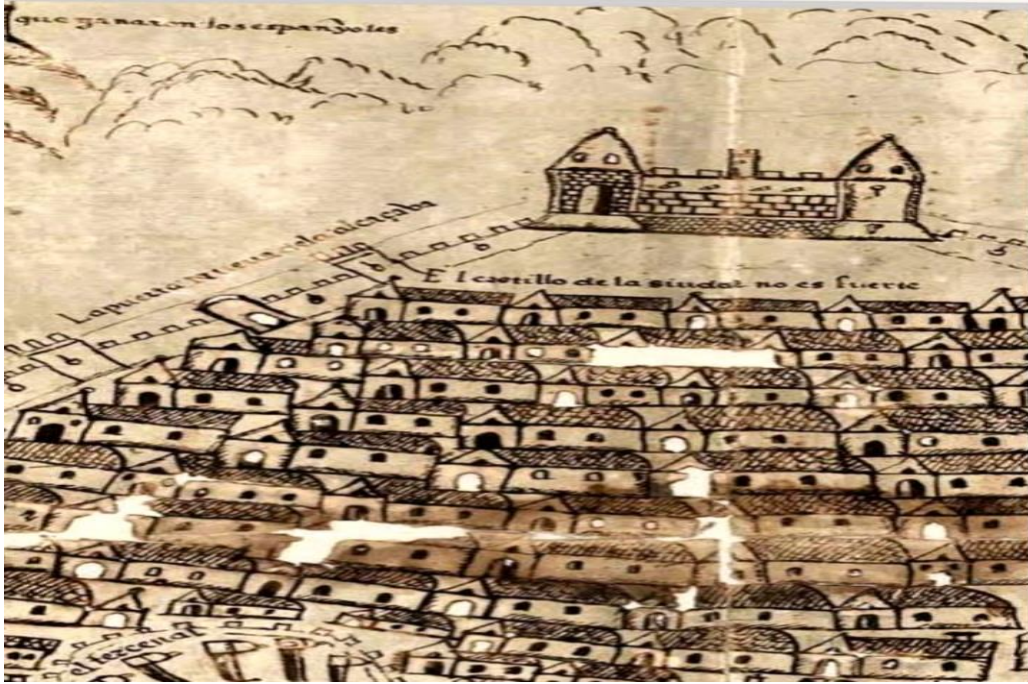 que ganaron los espanyoles
La puerta alcaçaba
El castillo de la siudat no es fuerte
el tercenal